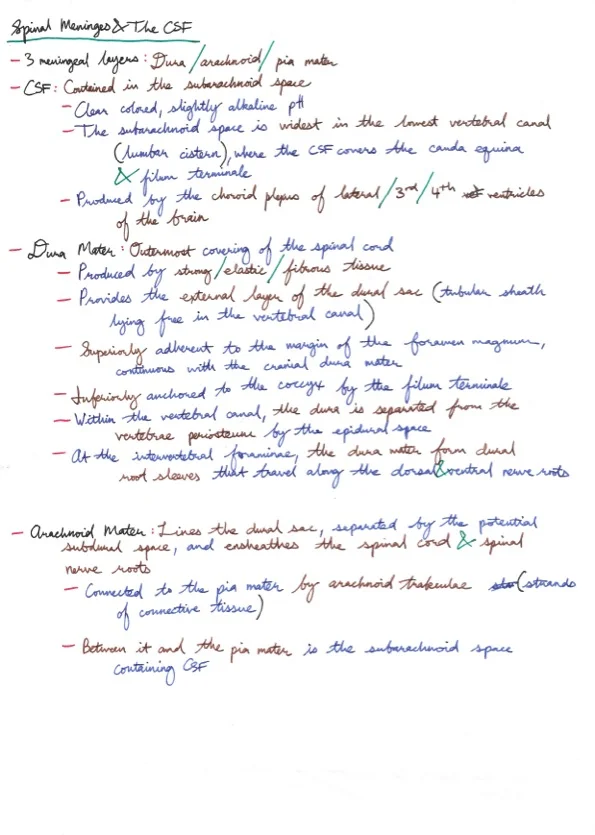 Spinal Meninges & The CSF
- 3 meningeal layers: Dura / arachnoid / pia mater
- CSF: Contained in the subarachnoid space
- Clear colored, slightly alkaline pH
- The subarachnoid space is widest in the lowest vertebral canal
(lumbar cistern), where the CSF covers the cauda equina
& filum terminale
- Produced by the choroid plexus of lateral / 3rd / 4th ventricles
of the brain
- Dura Mater: Outermost covering of the spinal cord
- Produced by strong / elastic / fibrous tissue
- Provides the external layer of the dural sac (tubular sheath
lying free in the vertebral canal)
- Superiorly adherent to the margin of the foramen magnum,
continuous with the cranial dura mater
- Inferiorly anchored to the coccyx by the filum terminale
- Within the vertebral canal, the dura is separated from the
vertebrae periosteum by the epidural space
- At the intervertebral foraminae, the dura mater form dural
root sleeves that travel along the dorsal & ventral nerve roots
- Arachnoid Mater: Lines the dural sac, separated by the potential
subdural space, and ensheathes the spinal cord & spinal
nerve roots
- Connected to the pia mater by arachnoid trabeculae (strands
of connective tissue)
- Between it and the pia mater is the subarachnoid space
containing CSF